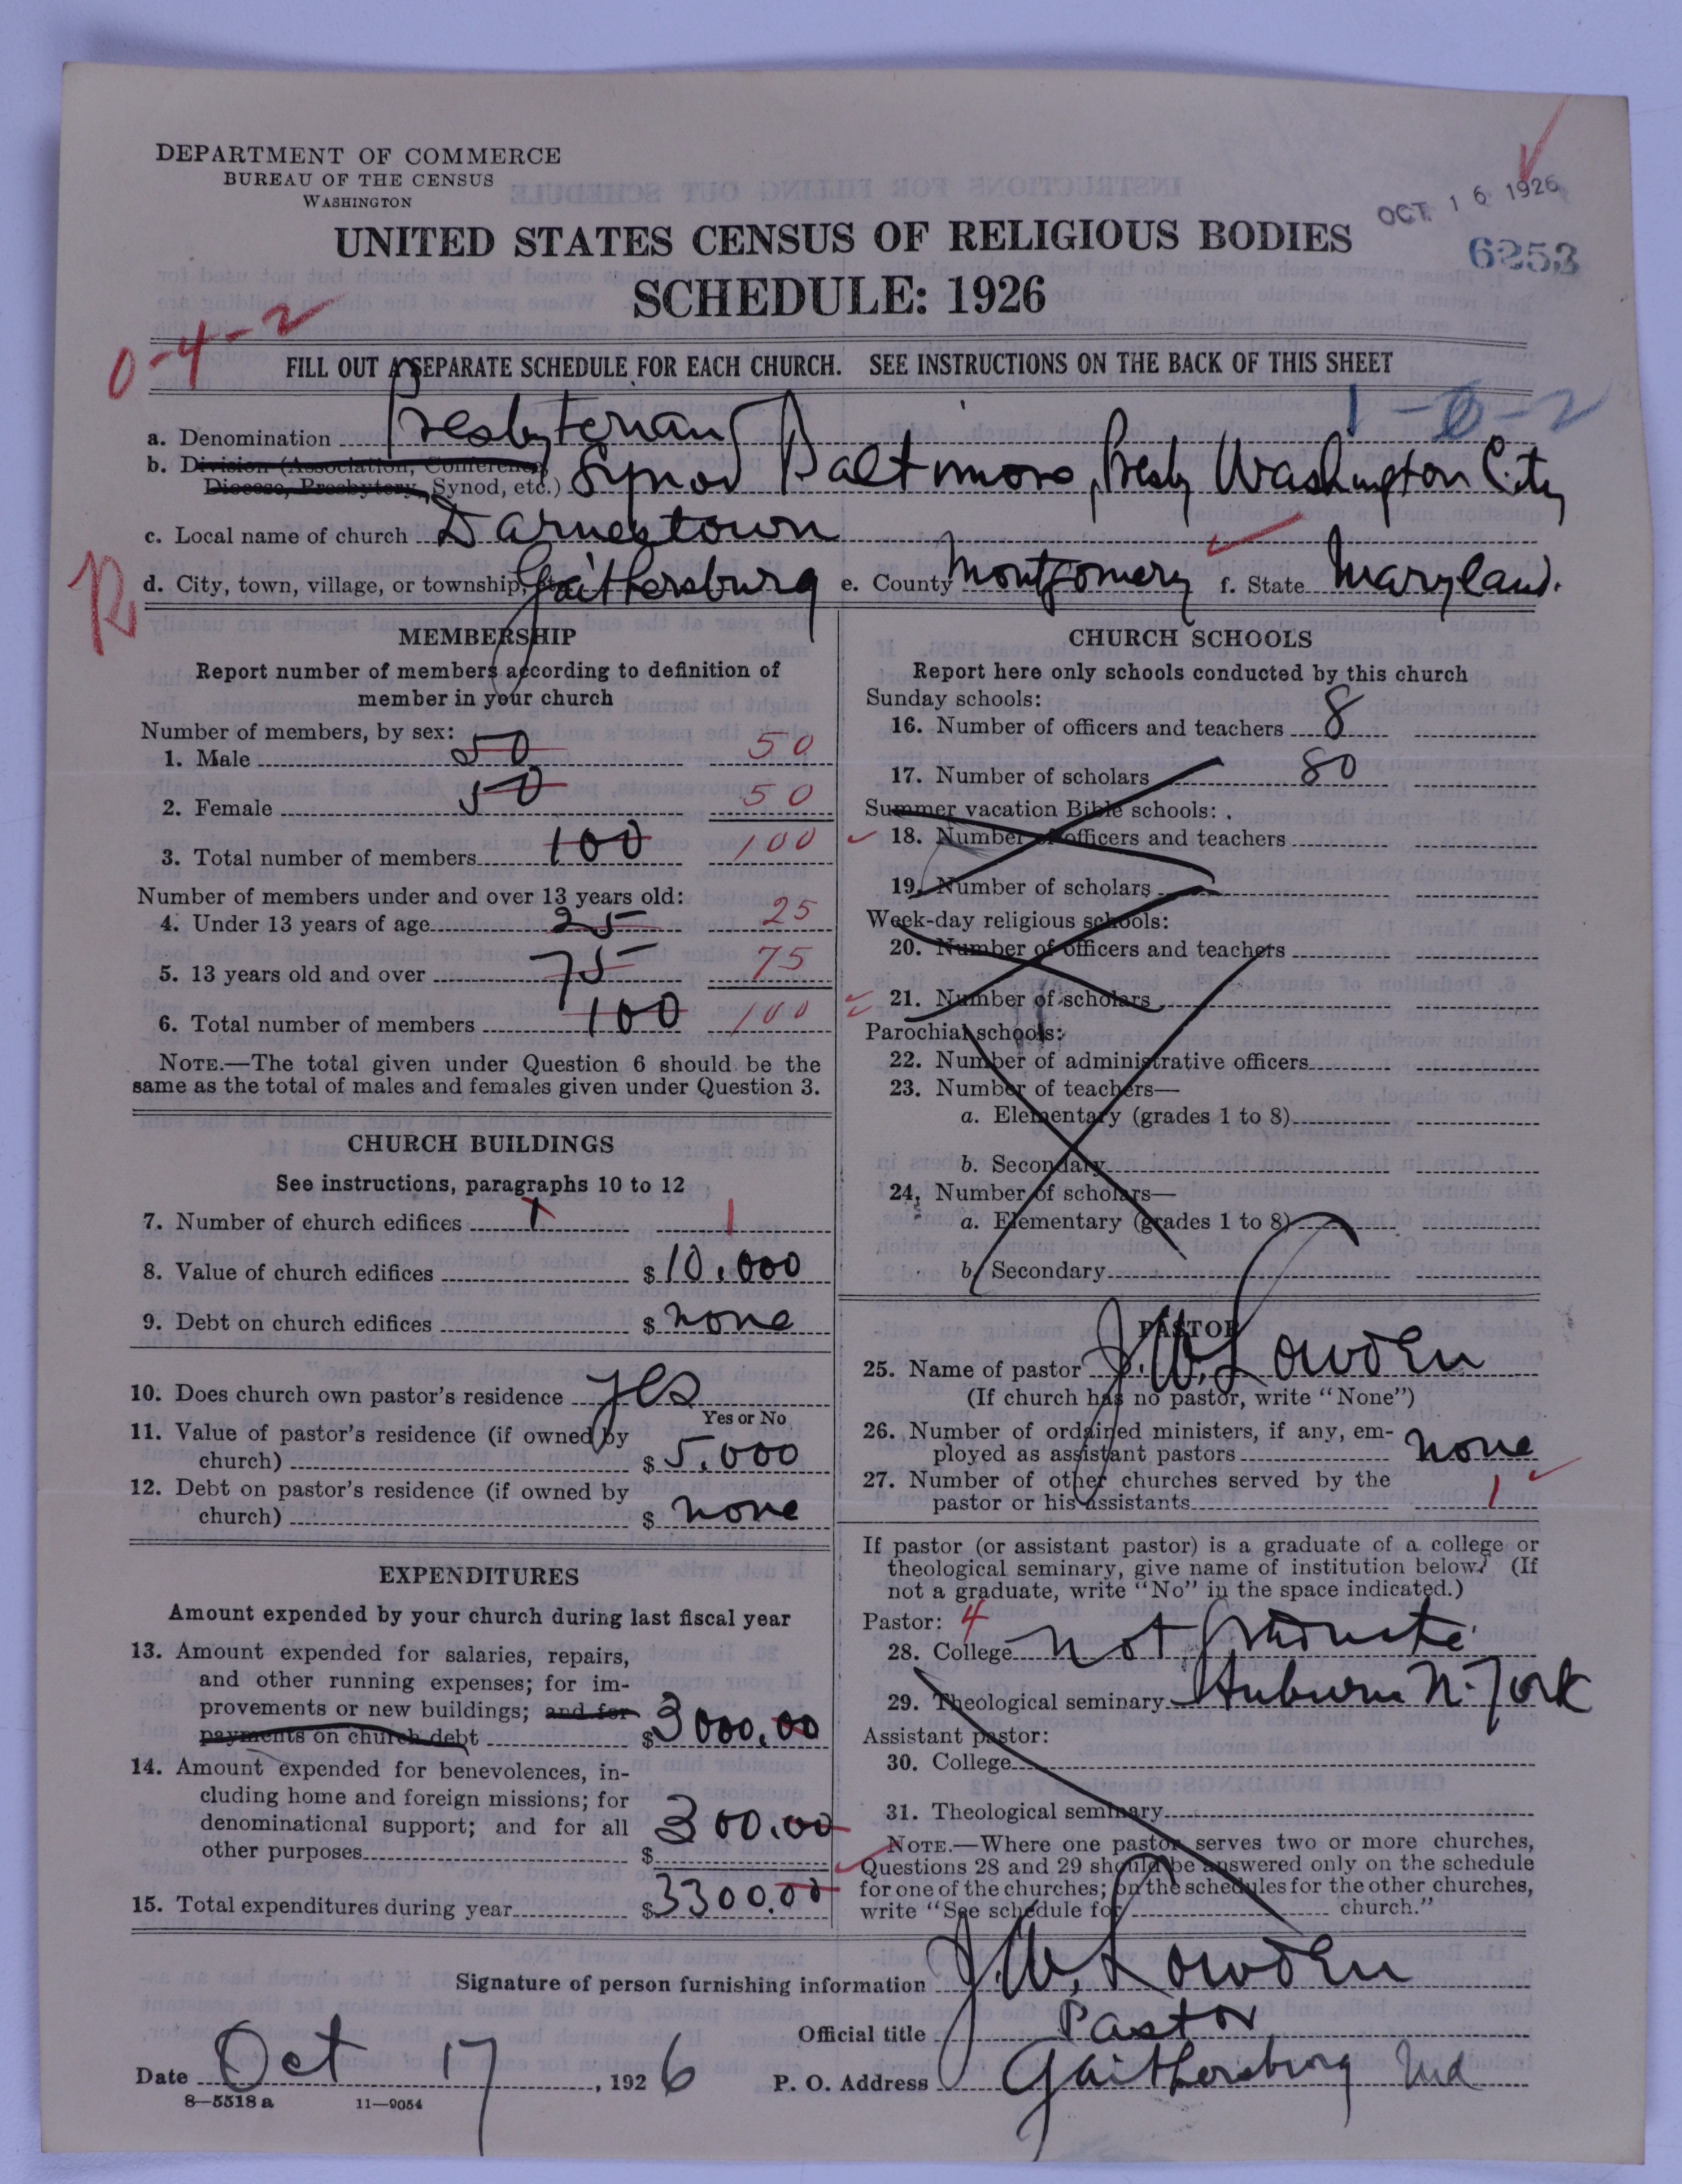 DEPARTMENT OF COMMERCE
BUREAU OF THE CENSUS
WASHINGTON
OCT 16 1926
6253
UNITED STATES CENSUS OF RELIGIOUS BODIES
SCHEDULE: 1926
0-4-2
FILL OUT A SEPARATE SCHEDULE FOR EACH CHURCH. SEE INSTRUCTIONS ON THE BACK OF THIS SHEET
1-0-2
a. Denomination Presbyterian
b. Division (Association, Conference,
Diocese, Presbytery, Synod, etc.) Synod Baltimore, Presby Washington City
c. Local name of church Darnestown
R
d. City, town, village, or township, etc. Gaithersburg e. County Montgomery f. State Maryland.
MEMBERSHIP
Report number of members according to definition of
member in your church
Number of members, by sex:
1. Male 50 50
2. Female 50 50
3. Total number of members 100 100
Number of members under and over 13 years old:
4. Under 13 years of age 25 25
5. 13 years old and over 75 75
6. Total number of members 100 100
NOTE.—The total given under Question 6 should be the
same as the total of males and females given under Question 3.
CHURCH BUILDINGS
See instructions, paragraphs 10 to 12
7. Number of church edifices 1 1
8. Value of church edifices $10,000
9. Debt on church edifices $ none
10. Does church own pastor's residence yes
Yes or No
11. Value of pastor's residence (if owned by
church) $ 5,000
12. Debt on pastor's residence (if owned by
church) $ none
EXPENDITURES
Amount expended by your church during last fiscal year
13. Amount expended for salaries, repairs,
and other running expenses; for im-
provements or new buildings; and for
payments on church debt $3000.00
14. Amount expended for benevolences, in-
cluding home and foreign missions; for
denominational support; and for all
other purposes $ 300.00
15. Total expenditures during year $3300.00
CHURCH SCHOOLS
Report here only schools conducted by this church
Sunday schools:
16. Number of officers and teachers 8
17. Number of scholars 80
Summer vacation Bible schools:
18. Number of officers and teachers
19. Number of scholars
Week-day religious schools:
20. Number of officers and teachers
21. Number of scholars
Parochial schools:
22. Number of administrative officers
23. Number of teachers—
a. Elementary (grades 1 to 8)
b. Secondary
24. Number of scholars—
a. Elementary (grades 1 to 8)
b. Secondary
PASTOR
25. Name of pastor J. W. Lowden
(If church has no pastor, write "None")
26. Number of ordained ministers, if any, em-
ployed as assistant pastors none
27. Number of other churches served by the
pastor or his assistants 1
If pastor (or assistant pastor) is a graduate of a college or
theological seminary, give name of institution below. (If
not a graduate, write "No" in the space indicated.)
Pastor: 4
28. College not graduate
29. Theological seminary Auburn N. York
Assistant pastor:
30. College
31. Theological seminary
NOTE.—Where one pastor serves two or more churches,
Questions 28 and 29 should be answered only on the schedule
for one of the churches; on the schedules for the other churches,
write "See schedule for church."
Signature of person furnishing information J. W. Lowden
Official title Pastor
Date Oct 17, 1926 P. O. Address Gaithersburg Md
8—5518 a 11—9054